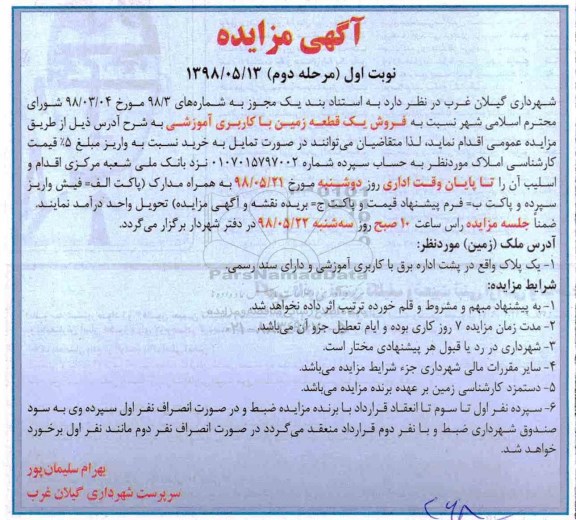 آگهی مزایده
نوبت اول (مرحله دوم) ۱۳۹۸/۰۵/۱۳
شهرداری گیلان غرب در نظر دارد به استناد بند یک مجوز به شماره‌های ۹۸/۳ مورخ ۹۸/۰۳/۰۴ شورای
محترم اسلامی شهر نسبت به فروش یک قطعه زمین با کاربری آموزشی به شرح آدرس ذیل از طریق
مزایده عمومی اقدام نماید، لذا متقاضیان می‌توانند در صورت تمایل به خرید نسبت به واریز مبلغ ۵٪ قیمت
کارشناسی املاک موردنظر به حساب سپرده شماره ۰۱۰۷۰۱۵۷۹۷۰۰۲ نزد بانک ملی شعبه مرکزی اقدام و
اسلیپ آن را تا پایان وقت اداری روز دوشنبه مورخ ۹۸/۰۵/۲۱ به همراه مدارک (پاکت الف= فیش واریز
سپرده و پاکت ب= فرم پیشنهاد قیمت و پاکت ج= بریده نقشه و آگهی مزایده) تحویل واحد درآمد نمایند.
ضمناً جلسه مزایده راس ساعت ۱۰ صبح روز سه‌شنبه ۹۸/۰۵/۲۲ در دفتر شهردار برگزار می‌گردد.
آدرس ملک (زمین) موردنظر:
۱- یک پلاک واقع در پشت اداره برق با کاربری آموزشی و دارای سند رسمی.
ParsNamadData
شرایط مزایده:
۱- به پیشنهاد مبهم و مشروط و قلم خورده ترتیب اثر داده نخواهد شد.
۲- مدت زمان مزایده ۷ روز کاری بوده و ایام تعطیل جزو آن می‌باشد.
۳- شهرداری در رد یا قبول هر پیشنهادی مختار است.
۴- سایر مقررات مالی شهرداری جزء شرایط مزایده می‌باشد.
۵- دستمزد کارشناسی زمین بر عهده برنده مزایده می‌باشد.
۶- سپرده نفر اول تا سوم تا انعقاد قرارداد با برنده مزایده ضبط و در صورت انصراف نفر اول سپرده وی به سود
صندوق شهرداری ضبط و با نفر دوم قرارداد منعقد می‌گردد در صورت انصراف نفر دوم مانند نفر اول برخورد
خواهد شد.
بهرام سلیمان‌پور
سرپرست شهرداری گیلان غرب